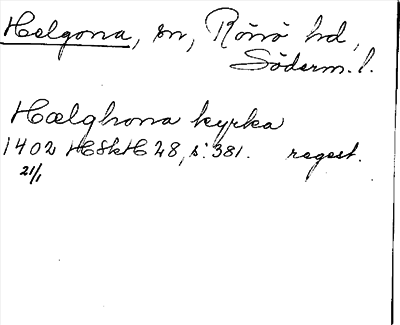 Helgona, sn, Rönö hd,
Söderm. l.
Hælghona kyrka
1402 HSkH 28, s. 381. regest.
21/1